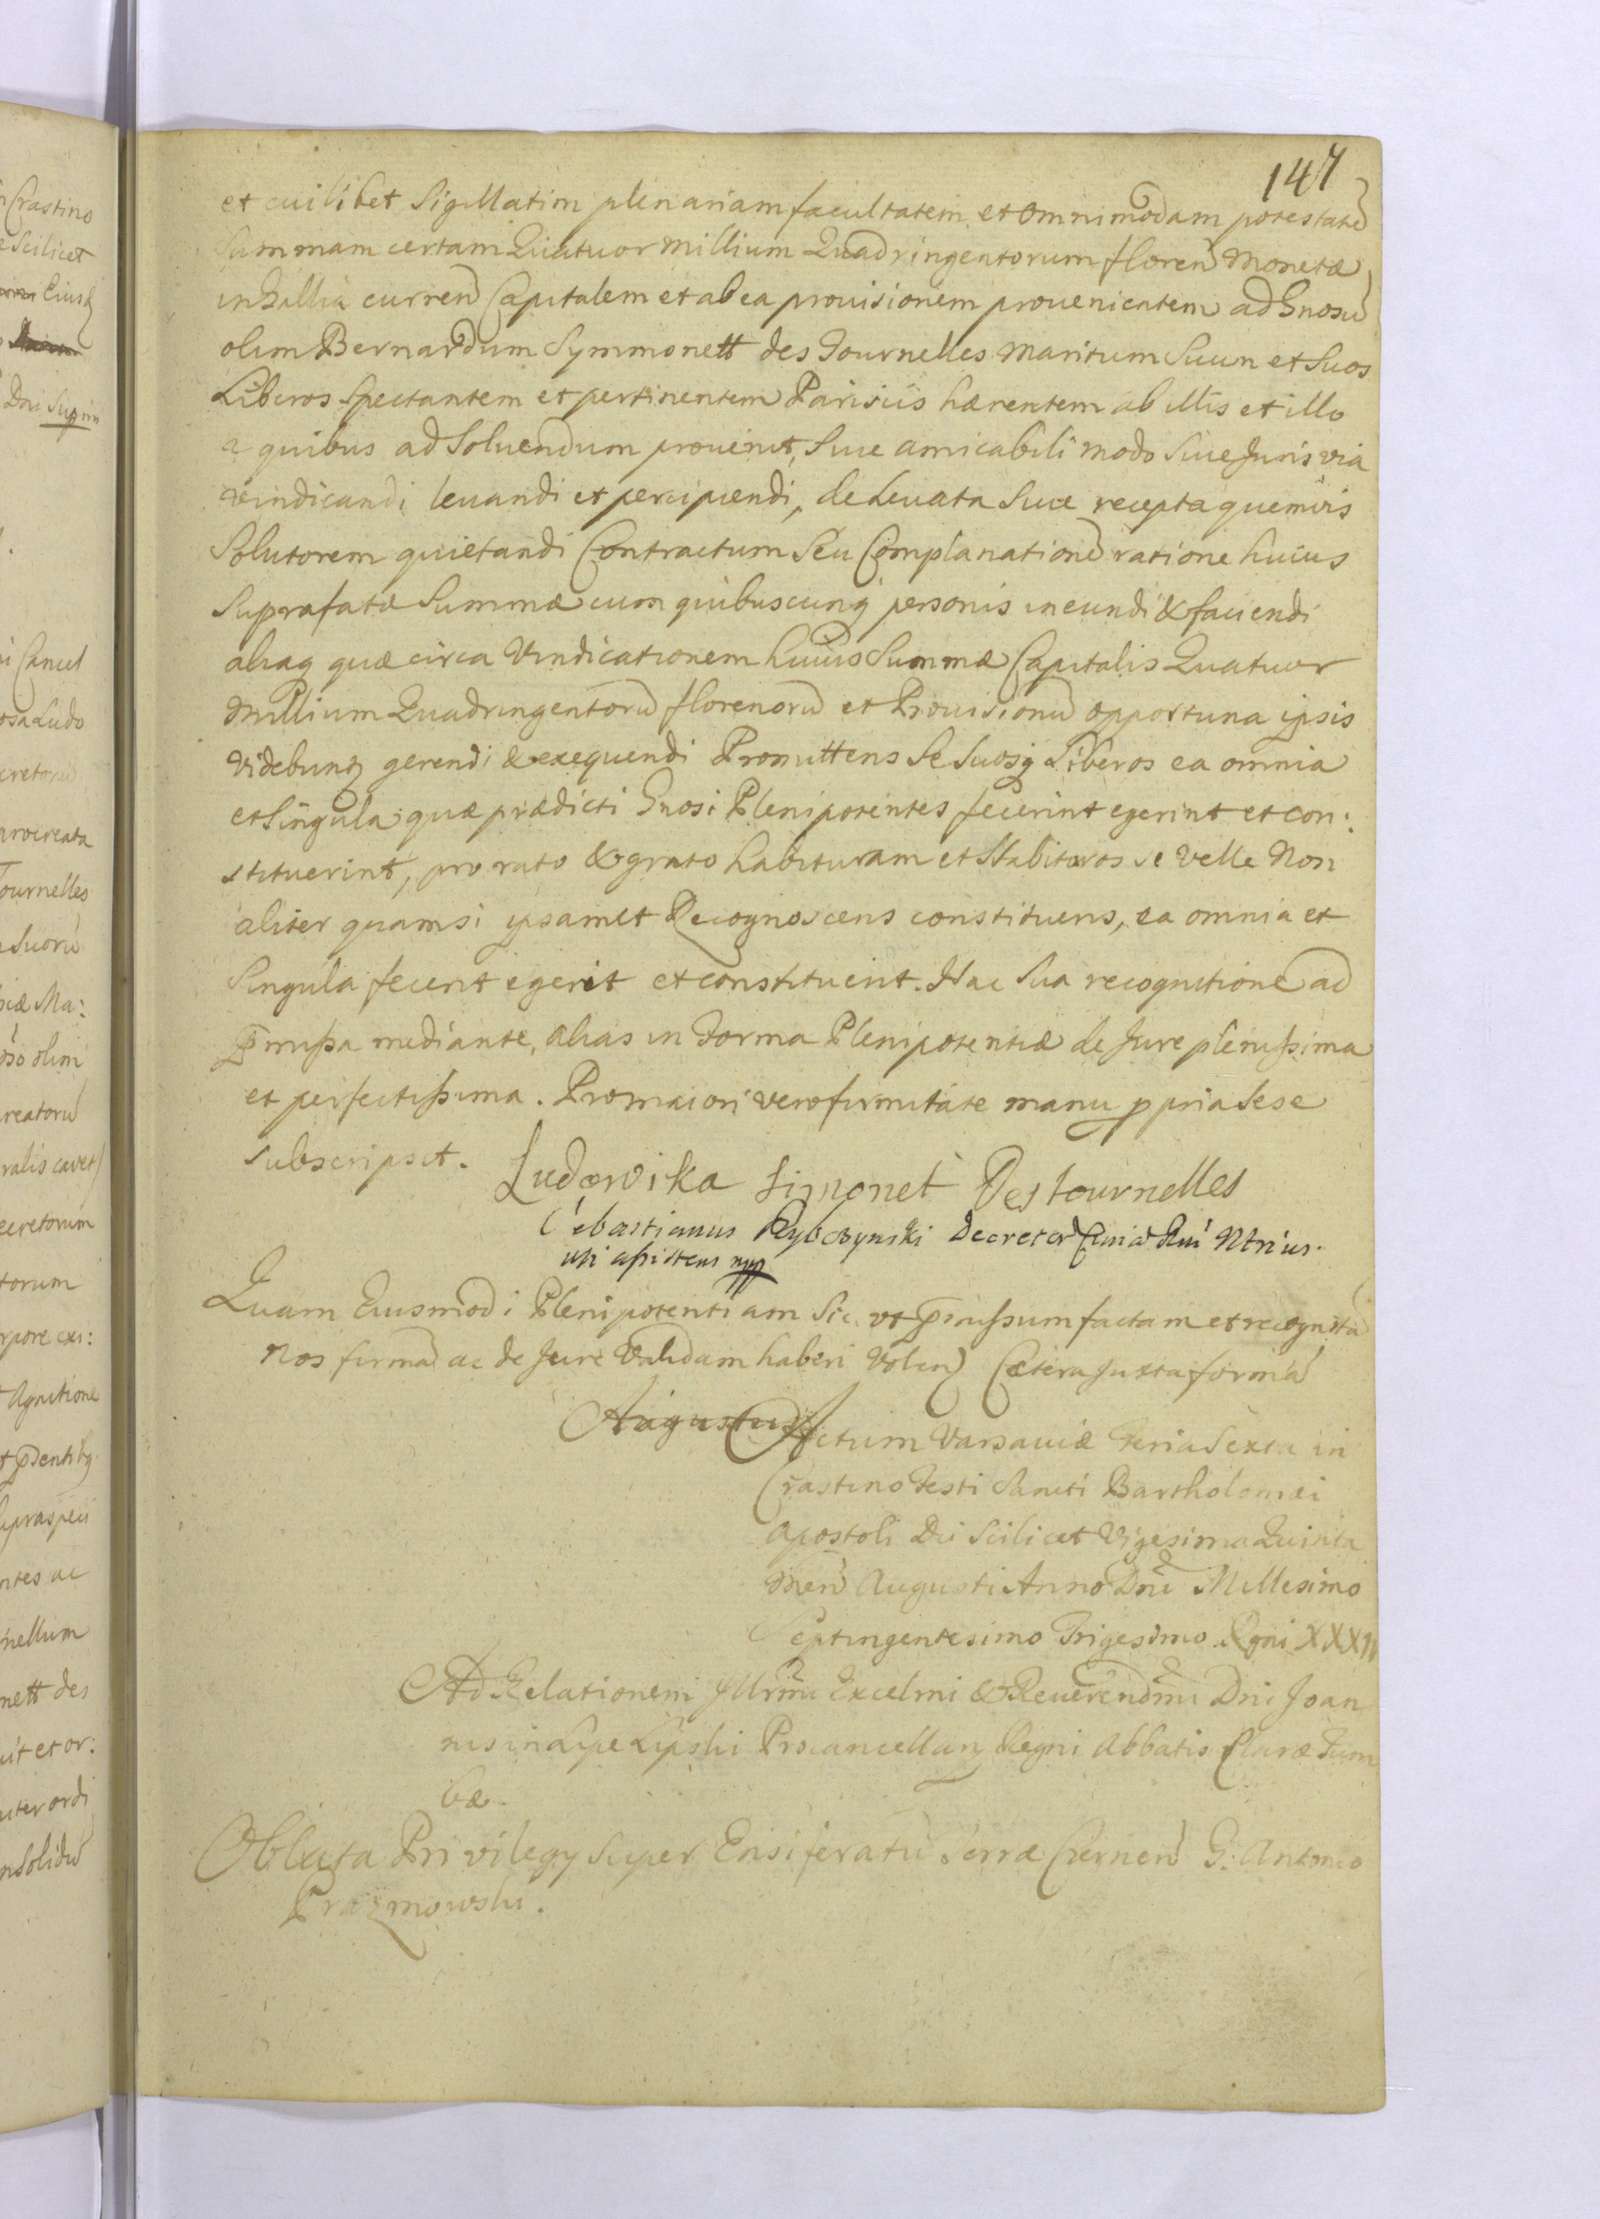 147
et cuilibet Sigillatim plenariam facultatem et omnimodam potestatē
Summam certam Quatuor Millium Quadringentorum floren̄ Monetæ
in Gallia curren̄ Capitalem et ab ea prouisionem prouenientem ad Gnosū
olim Bernardum Symmonett des Tournelles Maritum Suum et Suos
Liberos Spectantem et pertinentem Parisiis hærentem ab illis et illo
a quibus ad Soluendum prouenit, Siue amicabili modo Siue Juris via
vindicandi leuandi et percipiendi, de Leuata Siue recepta quemvis
Solutorem quietandi Contractum Seu Complanationē ratione huius
Suprafatæ Summæ cum quibuscunq personis ineundi & faciendi
aliaq quæ circa Vindicationem huius Summæ Capitalis Quatuor
Millium Quadringentorū florenorū et Prouisionū opportuna ipsis
Videbunt gerendi & exequendi Promittens Se Suosq Liberos ea omnia
et Singula quæ prædicti Gnosi Plenipotentes fecerint egerint et con:
stituerint, pro rato & grato habituram et Habituros se Velle Non
aliter quam si ipsamet Recognoscens constituens, ea omnia et
Singula fecerit egerit et constituerit. Hac Sua recognitione ad
p̄missa mediante, alias in Forma Plenipotentiæ de Jure plenissima
et perfectissima. Pro maiori vero firmitate manu ppria Sese
subscripsit. Ludowika Simonet Des tournelles
Sebastianus Rybczynski Decretor Curiæ
uti assistens mpp
Quam Eiusmodi Plenipotentiam Sic ut p̄missum factam et recognitā
Nos firmā ac de Jure Validam haberi Volen̄ Cætera Juxta formā
Augustus Actum Varsauiæ Feria Sexta in
Crastino Festi Sancti Bartholomæi
Apostoli Die Scilicet Vigesima Quinta
Men̄ Augusti Anno Dn̄i Millesimo
Septingentesimo Trigesimo Regni XXXIV
Ad Relationem Jllrm̄i Excelmi & Reuerendm̄i Dni Joan
nis in Lipe Lipski Procancellarij Regni Abbatis Claræ Tum
bæ.
Oblata Privilegij Super Ensiferatū Terræ Czernen̄ G: Antonio
Prazmowski.